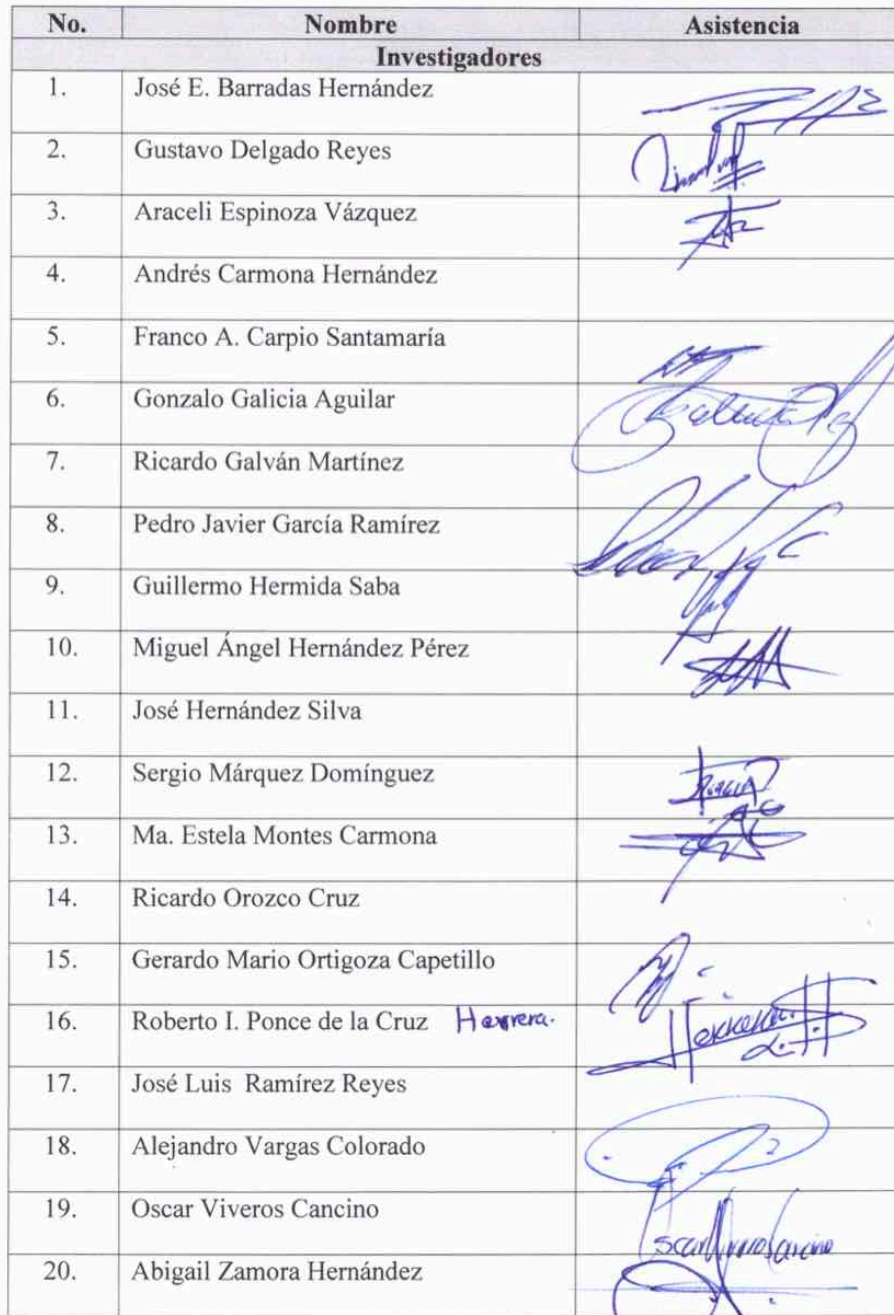 No. Nombre Asistencia
Investigadores
1. José E. Barradas Hernández
2. Gustavo Delgado Reyes
3. Araceli Espinoza Vázquez
4. Andrés Carmona Hernández
5. Franco A. Carpio Santamaría
6. Gonzalo Galicia Aguilar
7. Ricardo Galván Martínez
8. Pedro Javier García Ramírez
9. Guillermo Hermida Saba
10. Miguel Ángel Hernández Pérez
11. José Hernández Silva
12. Sergio Márquez Domínguez
13. Ma. Estela Montes Carmona
14. Ricardo Orozco Cruz
15. Gerardo Mario Ortigoza Capetillo
16. Roberto I. Ponce de la Cruz Herrera.
17. José Luis Ramírez Reyes
18. Alejandro Vargas Colorado
19. Oscar Viveros Cancino
20. Abigail Zamora Hernández